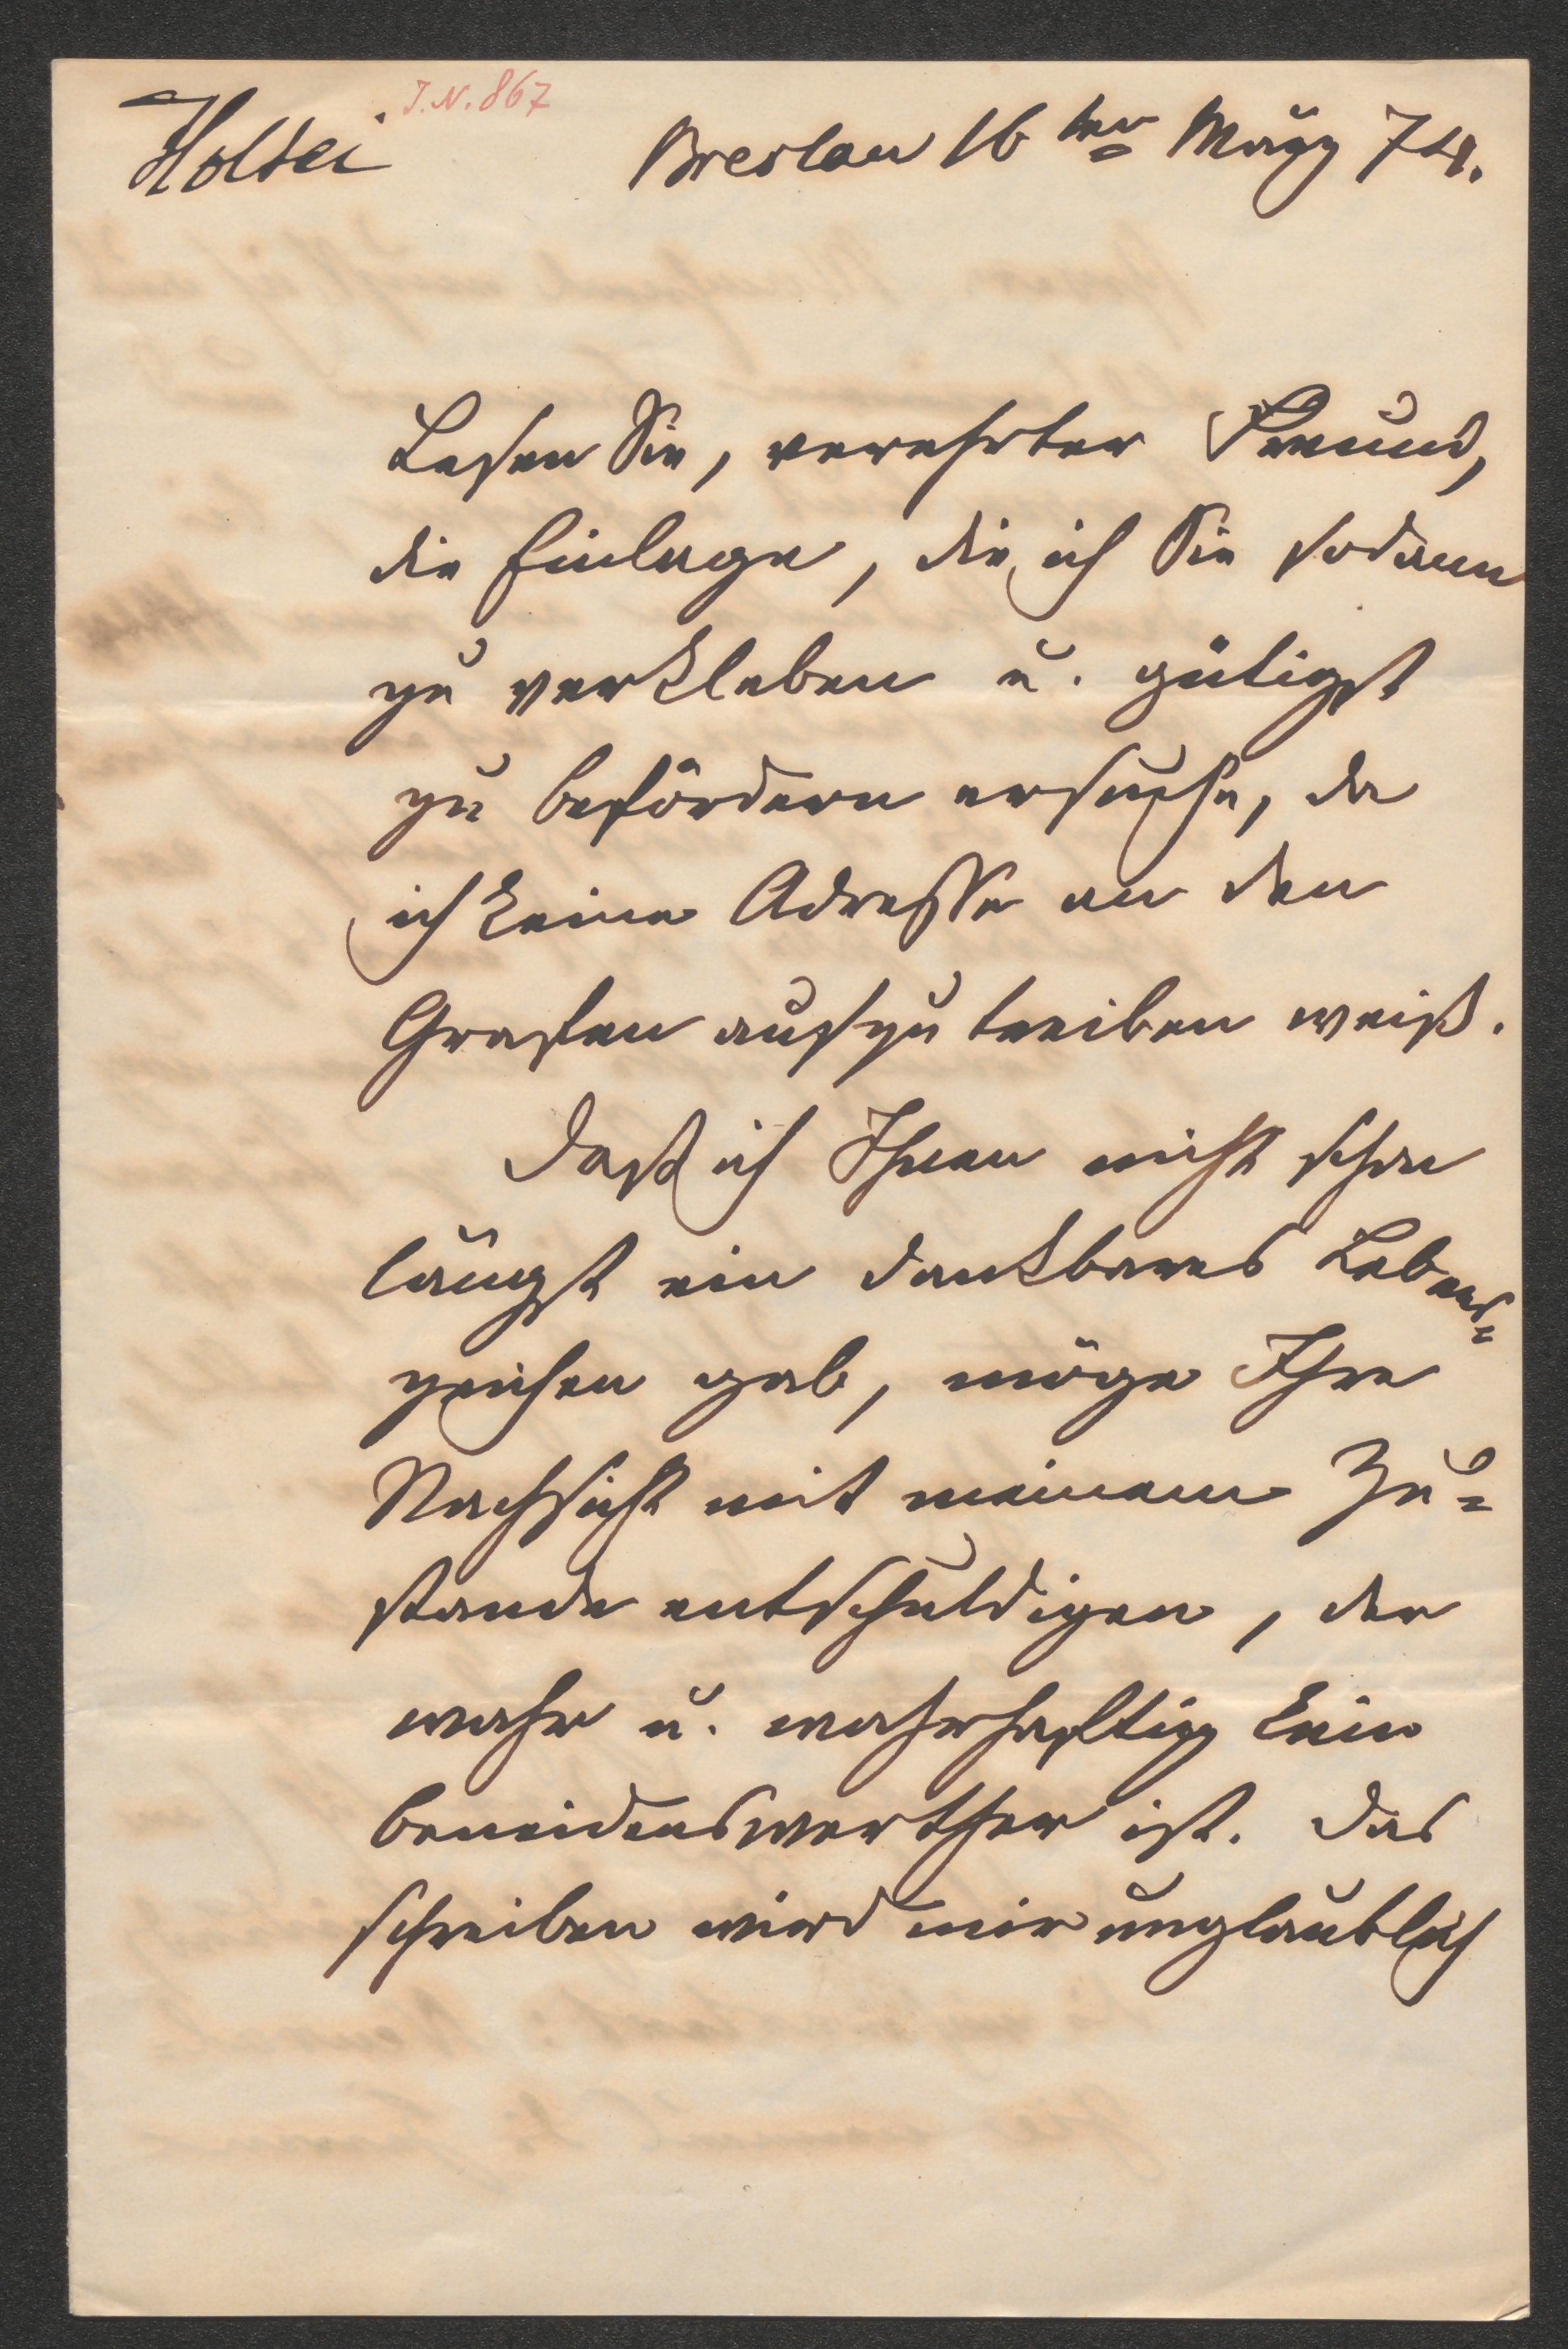 Holtei
J.N. 867
Breslau 16ten März 74.
Lesen Sie, verehrter Freund,
die Einlage, die ich Sie sodann
zu verkleben u. gütigst
zu befördern ersuche, da
ich keine Adresse an den
Grafen aufzutreiben weiß.
Daß ich Ihnen nicht schon
längst ein dankbares Lebens=
zeichen gab, möge Ihre
Nachsicht mit meinem Zu=
stande entschuldigen, der
wahr u. wahrhaftig kein
beneidenswerther ist. Das
schreiben wird mir unglaublich